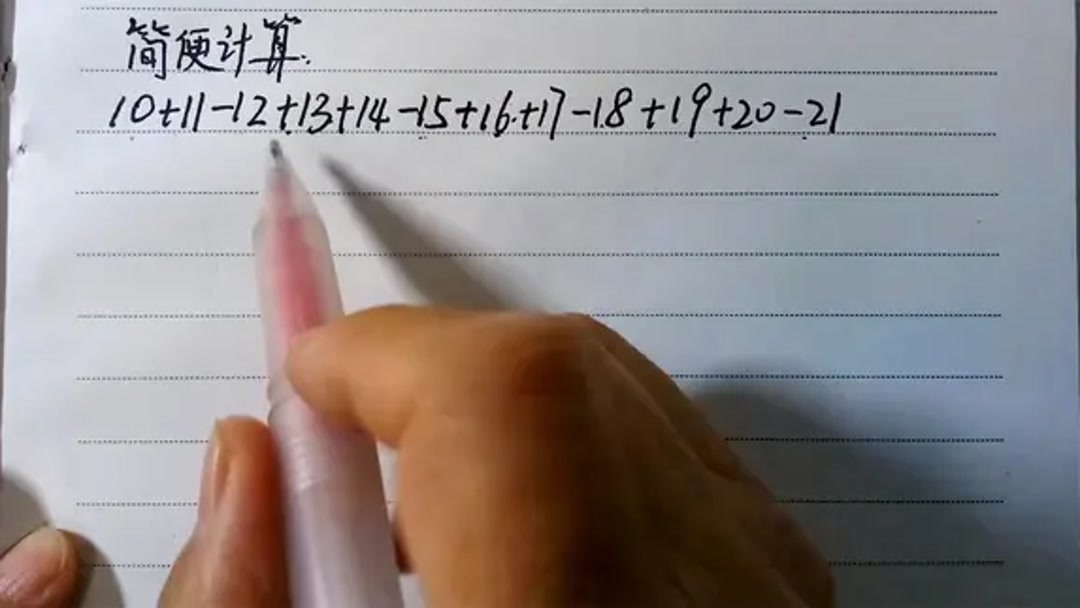 简便计算.
10+11-12+13+14-15+16+17-18+19+20-21